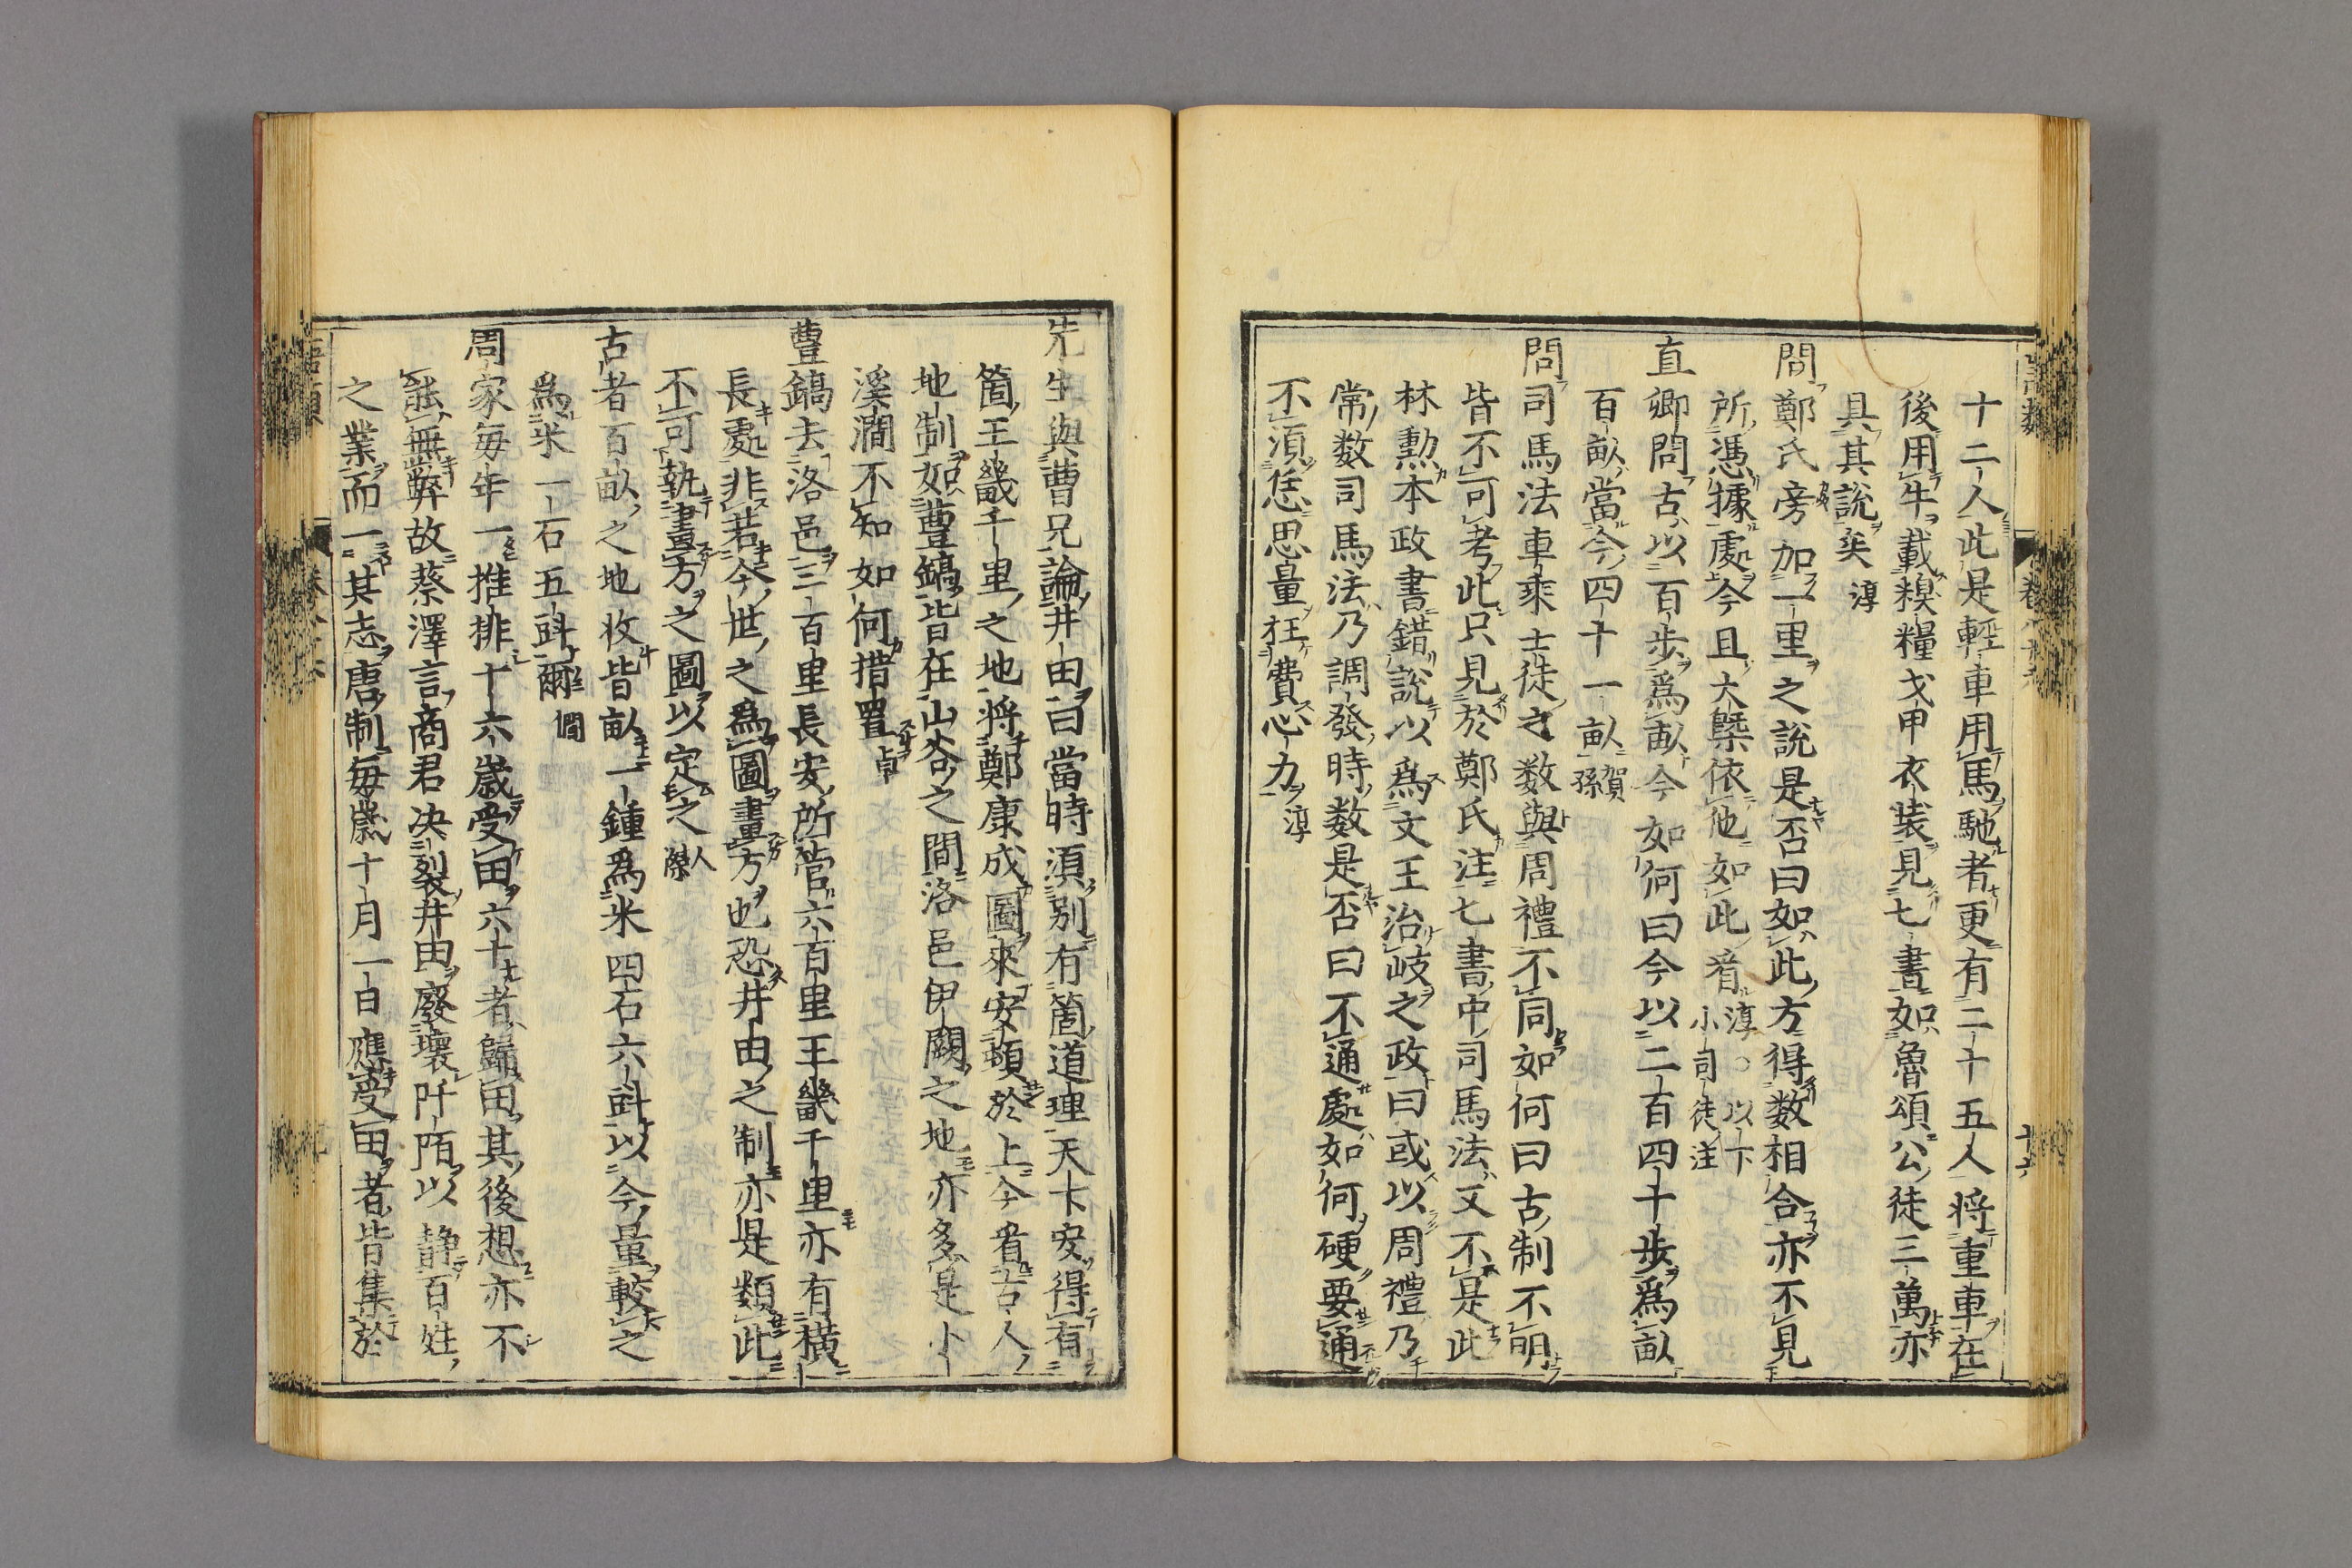 十二人此是輕車用馬馳者更有二十五人將重車在
後用牛載糗糧戈甲衣裝見七書如魯頌公徒三萬亦
具其說矣 淳
問鄭氏旁加一里之說是否曰如此方得数相合亦不見
所憑據處今且大槩依他如此看 淳○以下小司徒注
直卿問古以百步爲畝今如何曰今以二百四十步爲畝
百畝當今四十一畝 賀孫
問司馬法車乘士徒之数與周禮不同如何曰古制不明
皆不可考此只見於鄭氏注七書中司馬法又不是此
林勲本政書錯說以爲文王治岐之政曰或以周禮乃
常数司馬法乃調發時数是否曰不通處如何硬要通
不須恁思量枉費心力 淳
先生與曹兄論井田曰當時須別有箇道理天下安得有
箇王畿千里之地將鄭康成圖來安頓於上今看古人
地制如豊鎬皆在山谷之間洛邑伊闕之地亦多是小
溪澗不知如何措置 卓
豊鎬去洛邑三百里長安所管六百里王畿千里亦有横
長處非若今世之爲圖畫方也恐井田之制亦是類此
不可執畫方之圖以定之 人傑
古者百畝之地收皆畝一鍾爲米四石六斗以今量較之
爲米一石五斗爾 僩
周家每年一推排十六歲受田六十者歸田其後想亦不
能無弊故蔡澤言商君决裂井田廢壞阡陌以静百姓
之業而一其志唐制每歲十月一日應受田者皆集於